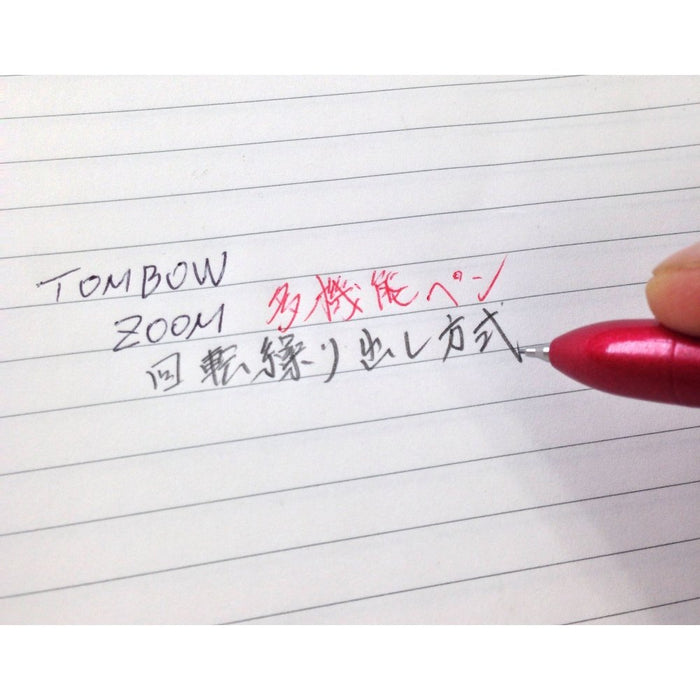 TOMBOW
ZOOM 多機能ペン
回転繰り出し方式